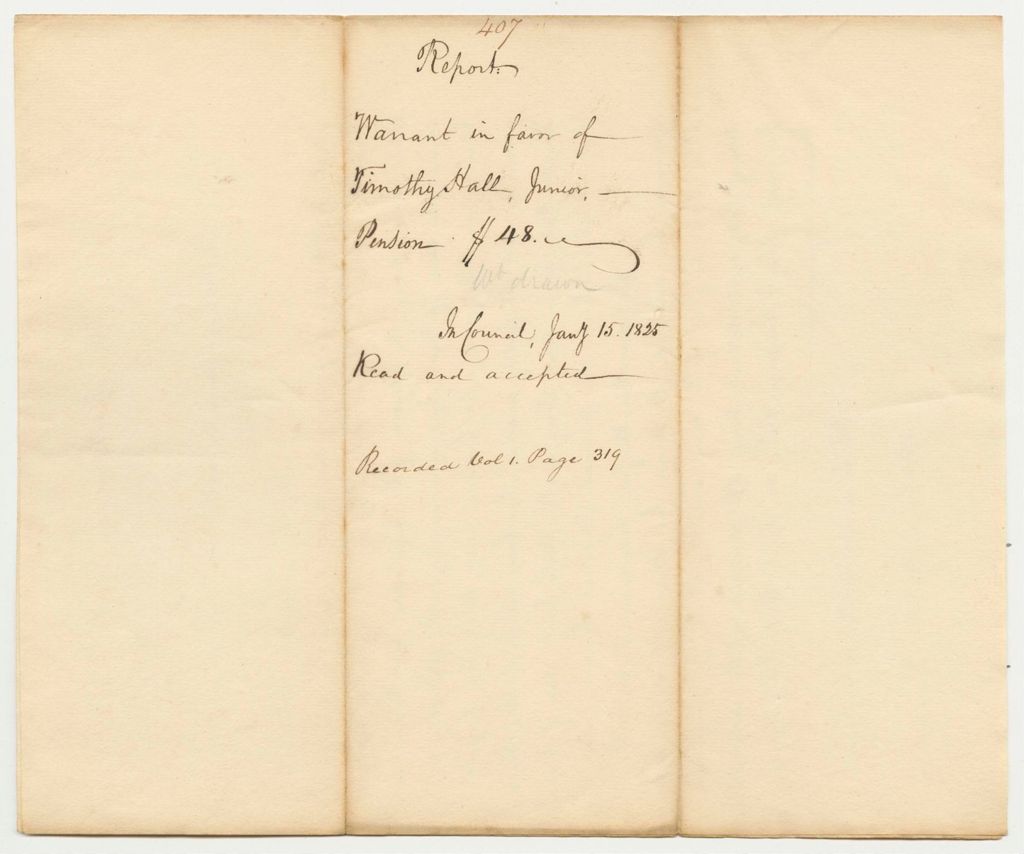 407
Report.
Warrant in favor of
Timothy Hall, Junior,
Pension $48.
Wt drawn
In Council, Jany 15. 1825
Read and accepted
Recorded Vol 1. Page 319